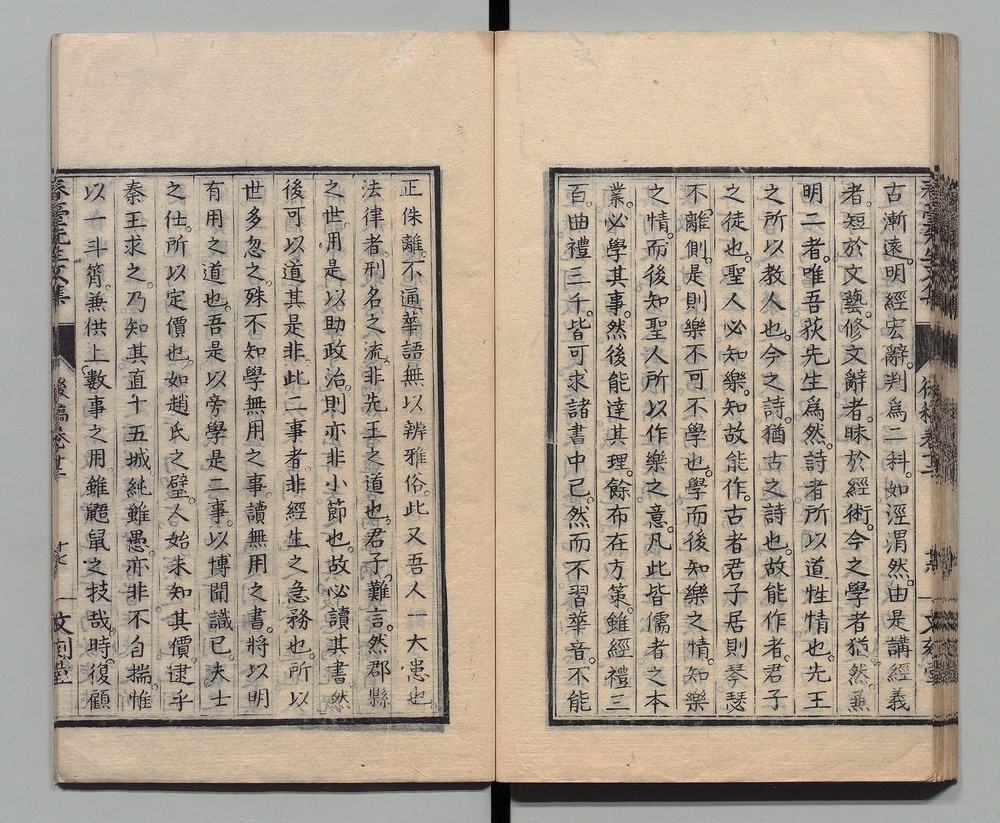 古漸遠。明經宏辭。判爲二科。如涇渭然。由是講經義
者。短於文藝。修文辭者。昧於經術。今之學者猶然。兼
明二者。唯吾荻先生爲然。詩者所以道性情也。先王
之所以教人也。今之詩。猶古之詩也。故能作者。君子
之徒也。聖人必知樂。知故能作。古者君子居則琴瑟
不離側。是則樂不可不學也。學而後知樂之情。知樂
之情。而後知聖人所以作樂之意。凡此皆儒者之本
業。必學其事。然後能達其理。餘布在方策。雖經禮三
百。曲禮三千。皆可求諸書中已。然而不習華音。不能
正侏離。不通華語。無以辨雅俗。此又吾人一大患也
法律者。刑名之流。非先王之道也。君子難言。然郡縣
之世。用是以助政治。則亦非小節也。故必讀其書。然
後可以道其是非。此二事者。非經生之急務也。所以
世多忽之。殊不知學無用之事。讀無用之書。將以明
有用之道也。吾是以旁學是二事。以博聞識已。夫士
之仕。所以定價也。如趙氏之璧。人始未知其價。逮乎
秦王求之。乃知其直十五城。純雖愚。亦非不自揣。惟
以一斗筲。兼供上數事之用。雖鼫鼠之技哉。時復顧
春臺先生文集
後稿卷十五
文刻堂